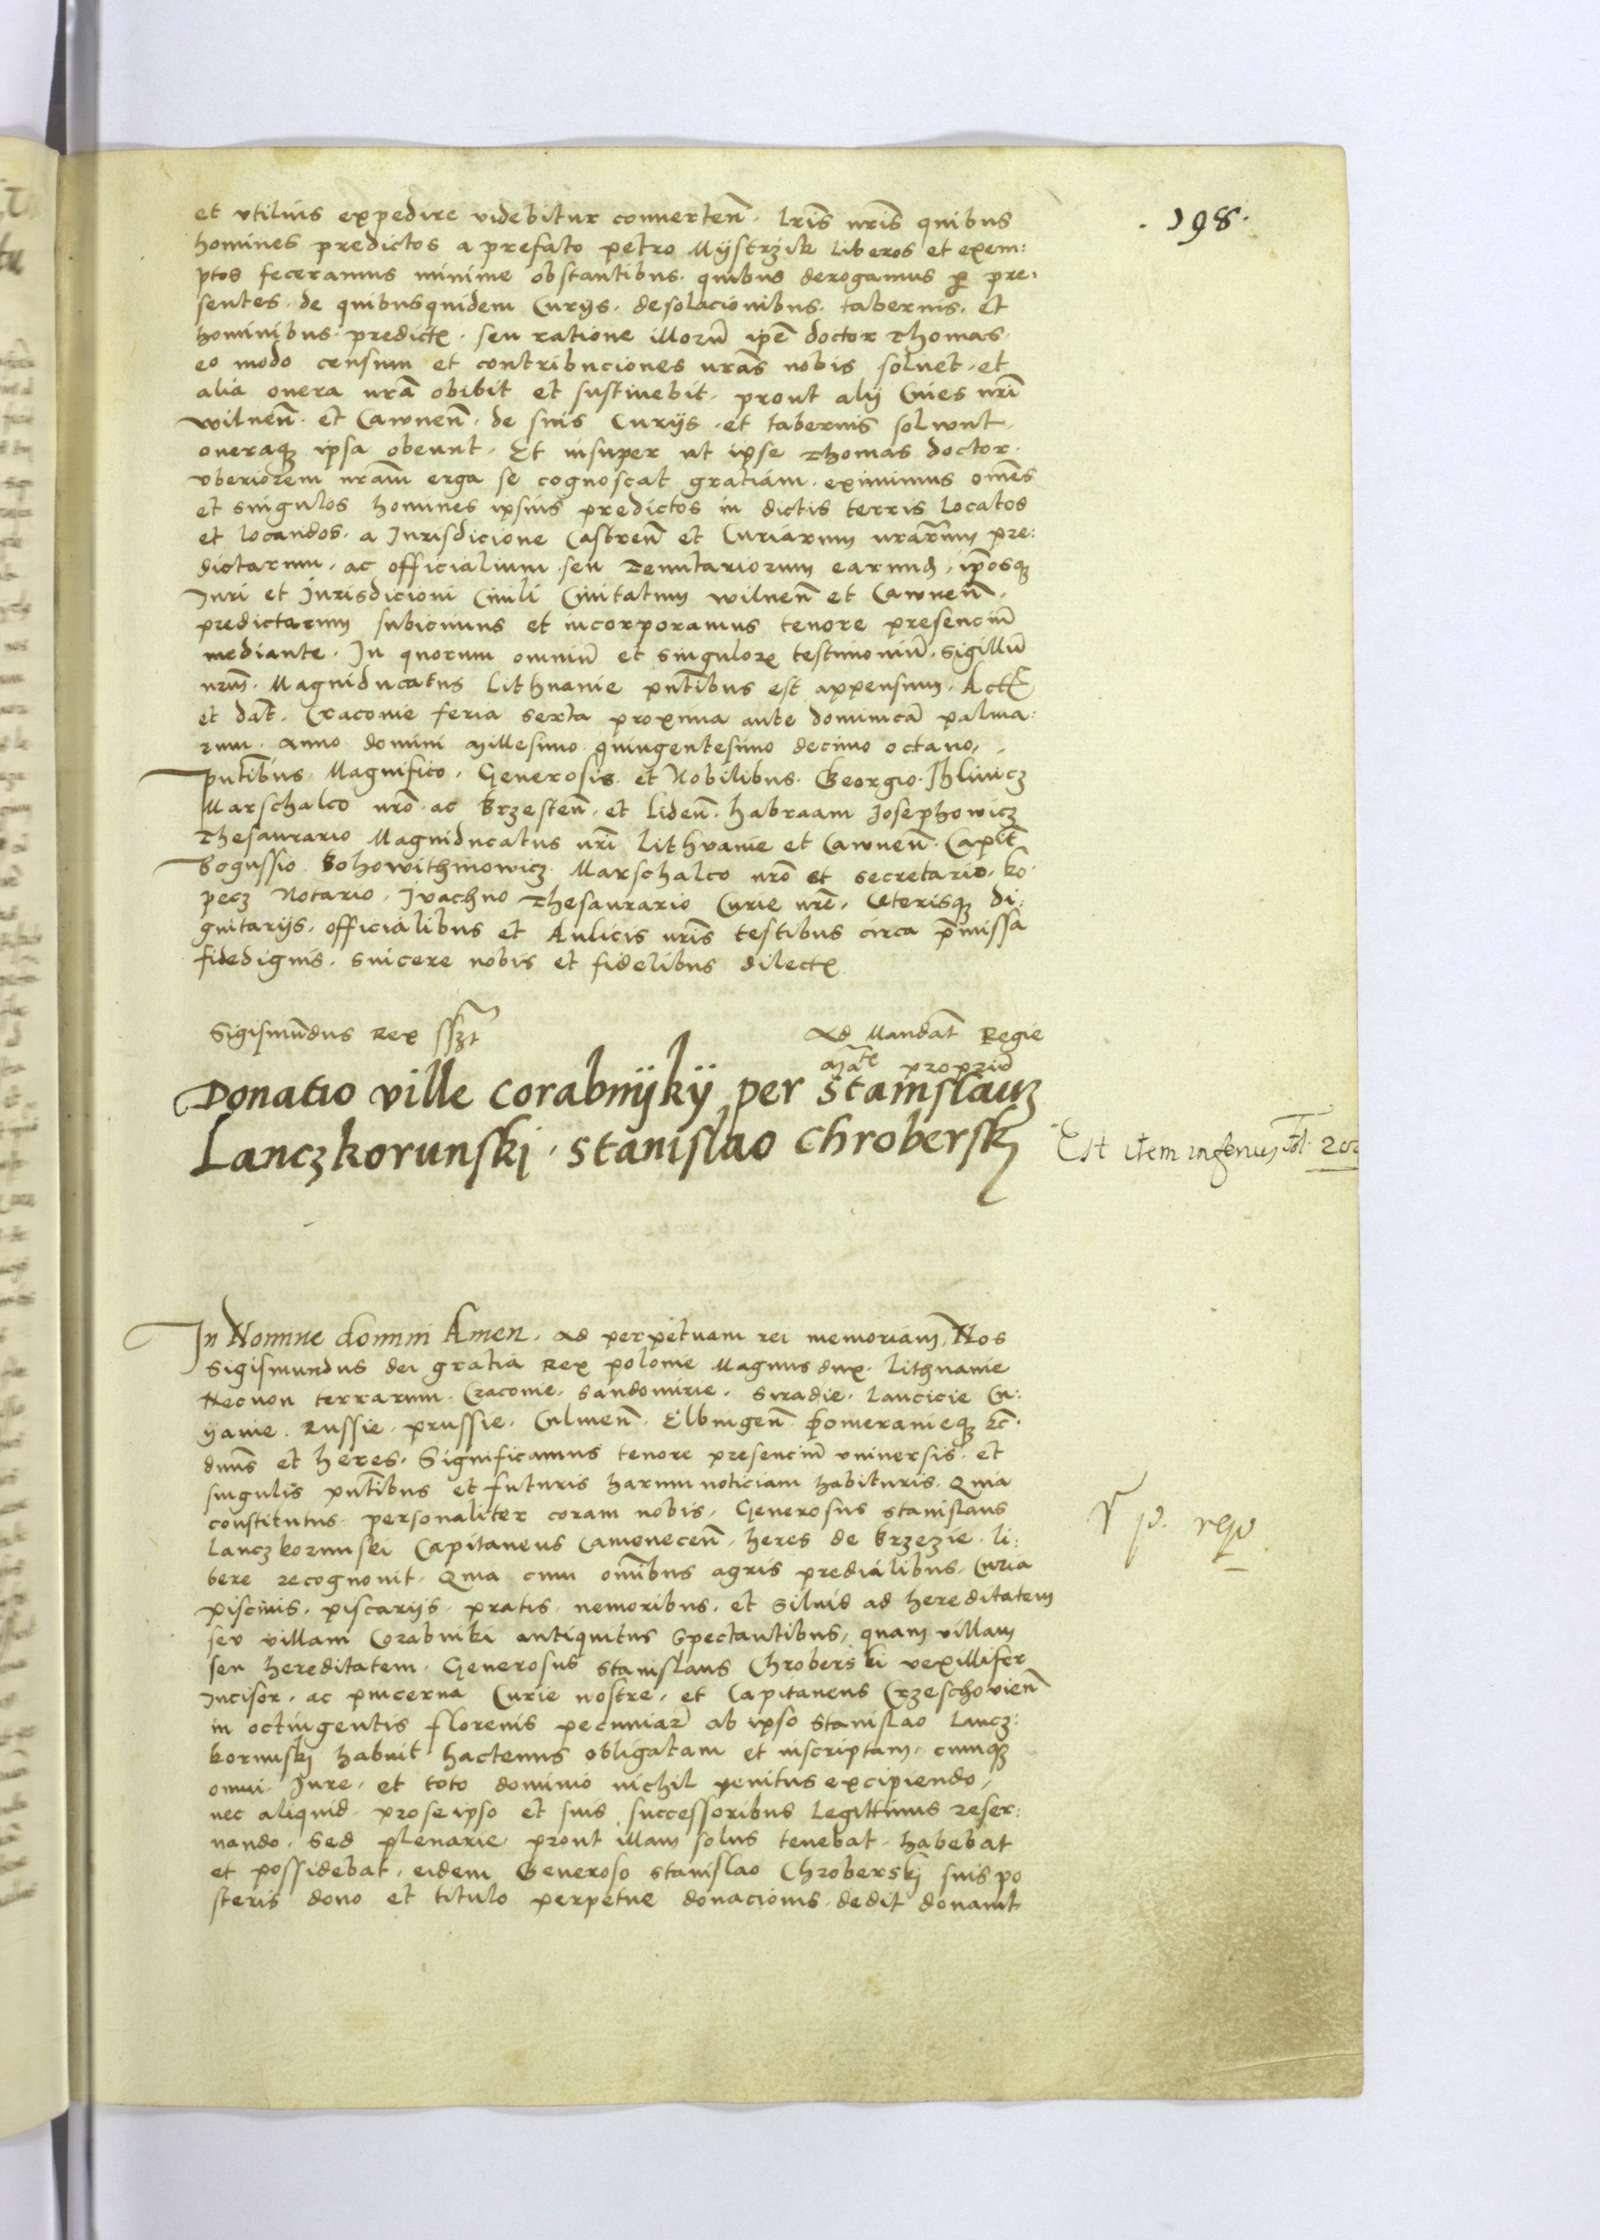 . 198 .
et vtilius expedire videbitur conuerten̄. lr̄is nr̄is quibus
homines predictos a prefato petro Mystrzik liberos et exem:
ptos feceramus minime obstantibus. quibus derogamus ꝑ pre:
sentes. de quibusquidem Curijs. desolacionibus. tabernis. et
hominibus. predictꝭ. seu ratione illorū ip̄e doctor Thomas
eo modo censum et contribuciones nr̄as nobis soluet. et
alia onera nr̄a obibit et sustinebit. prout alij Ciues nr̄i
wilnen̄. et Cawnen̄. de suis Curijs. et tabernis soluunt
oneraqꝫ ipsa obeunt. Et insuper ut ipse Thomas doctor.
vberiorem nr̄am erga se cognoscat gratiam. eximimus om̄es
et singulos homines ipsius predictos in dictis terris locatos
et locandos. a Jurisdicione Castren̄ et Curiarum nr̄arum pre:
dictarum. ac officialium seu Tenutariorum earund̄. ip̄osqꝫ
Juri et Jurisdicioni Ciuili Ciuitatum wilnen̄ et Cawnen̄.
predictarum subicimus et incorporamus tenore presenciū
mediante. In quorum omniū et singulorꝝ testimoniū. sigillū
nr̄um. Magniducatus Lithuanie pn̄tibus est appensum. Actꝭ
et dat̄. Cracouie feria sexta proxima ante dominicā palma:
rum. anno domini Millesimo quingentesimo decimo octauo.
pn̄tibus Magnifico. Generosis. et Nobilibus. Georgio. Jhlinicz
Marschalco nr̄o. ac Brzesten̄. et Liden̄. habraam Josephowicz
Thesaurario Magniducatus nr̄i Lithvanie et Cawnen̄. Capit̄
Bogussio Bohowithinowicz Marschalco nr̄o et secretario. ko.
pecz Notario. Jvachno Thesaurario Curie nr̄e. Ceterisqꝫ di:
gnitarijs. officialibus et Aulicis nr̄is testibus circa p̄missa
fidedignis. sincere nobis et fidelibus dilectꝭ
Sigismūdus Rex sszt
Ad Mandat̄ Regie
Ma^te propriū
Donatio ville Corabnijkij per Stanislauꝫ
Lanczkorunskj. Stanislao Chroberskj
Est item inferius fol. 202
In Nomine domini Amen. Ad perpetuam rei memoriam. Nos
Sigismundus dei gratia Rex polonie Magnus dux. Lithuanie
Necnon terrarum. Cracouie. Sandomirie. Siradie. Lancicie Cu:
yauie. Russie. prussie. Culmen̄. Elbingen̄ Pomeranieqꝫ etc̄.
dn̄us et heres. Significamus tenore presenciū vniuersis. et
singulis pn̄tibus et futuris harum noticiam habituris. Quia
constitutus. personaliter coram nobis. Generosus Stanislaus
Lanczkorunski Capitaneus Camenecen̄. heres de Brzezie. li:
bere recognouit. Quia cum om̄ibus agris predialibus. Curia
piscinis. piscarijs. pratis. nemoribus. et Siluis ad hereditatem
seu villam Corabniki antiquitus Spectantibus. quam villam
seu hereditatem. Generosus Stanislaus Chroberski vexillifer
Incisor. ac pincerna Curie nostre. et Capitaneus Crzeschouien̄
in octingentis florenis pecuniarꝝ ab ipso Stanislao Lancz:
korunskj habuit hactenus obligatam et inscriptam. cumqꝫ
omni Jure. et toto dominio nichil penitus excipiendo.
nec aliquid. pro se ipso et suis successoribus legittimis reser:
uando. Sed plenarie prout illam solus tenebat. habebat
et possidebat. eidem Generoso Stanislao Chroberskj suis po
steris dono et titulo perpetue donacionis. dedit donauit